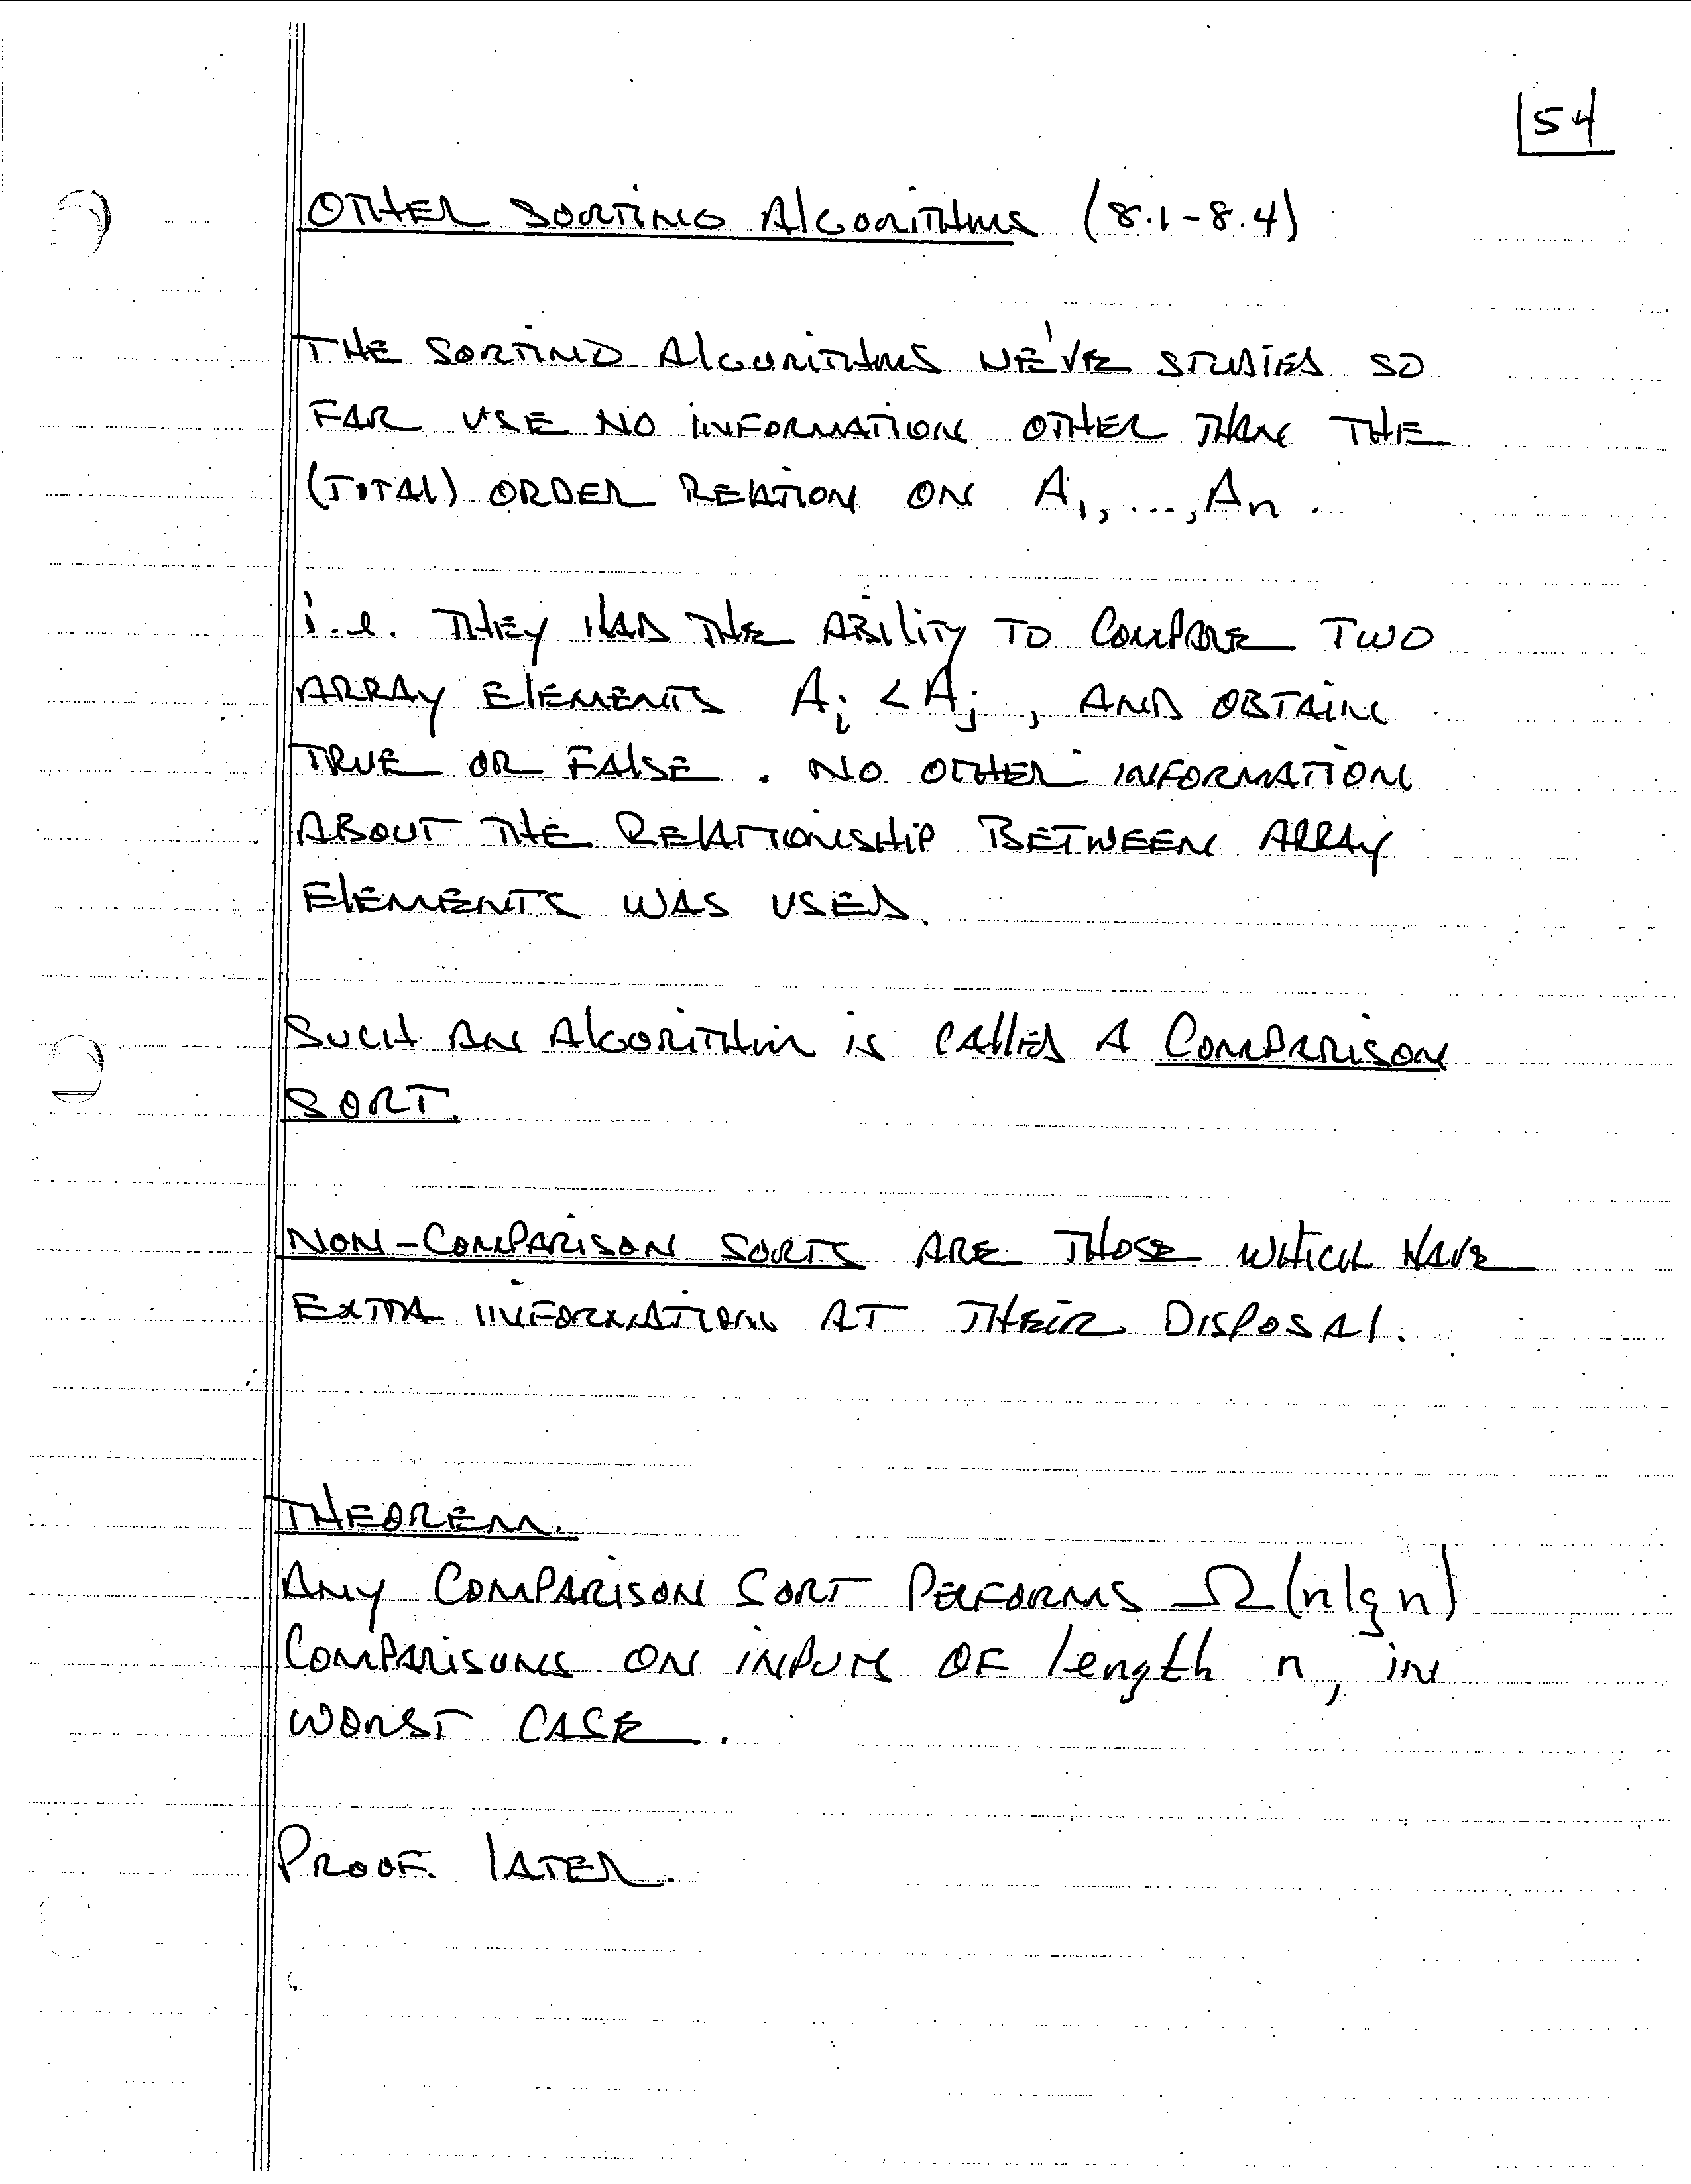 54
OTHER SORTING ALGORITHMS (8.1-8.4)
THE SORTING ALGORITHMS WE'VE STUDIED SO
FAR USE NO INFORMATION OTHER THAN THE
(TOTAL) ORDER RELATION ON A₁, ..., Aₙ.
i.e. THEY HAD THE ABILITY TO COMPARE TWO
ARRAY ELEMENTS Aᵢ < Aⱼ, AND OBTAIN
TRUE OR FALSE. NO OTHER INFORMATION
ABOUT THE RELATIONSHIP BETWEEN ARRAY
ELEMENTS WAS USED.
SUCH AN ALGORITHM IS CALLED A COMPARISON
SORT.
NON-COMPARISON SORTS ARE THOSE WHICH HAVE
EXTRA INFORMATION AT THEIR DISPOSAL.
THEOREM.
ANY COMPARISON SORT PERFORMS Ω(n lg n)
COMPARISONS ON INPUTS OF length n, IN
WORST CASE.
PROOF. LATER.